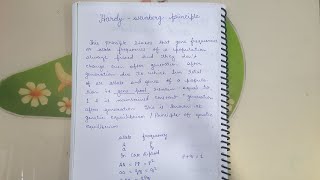 Hardy - wenberg principle
This principle states that gene frequency
or allele frequency of a population
always fixed and they don't
change even after generation after
generation due to which sum total
of all allele and genes of a popula
tion is gene pool remain equal to
1 & is maintained constant generation
after generation. This is known as
genetic equilibrium / Principle of genetic
equilibrium
allele frequency
A p
a q
In case diploid p+q = 1
AA = PP = P²
aa = qq = q²